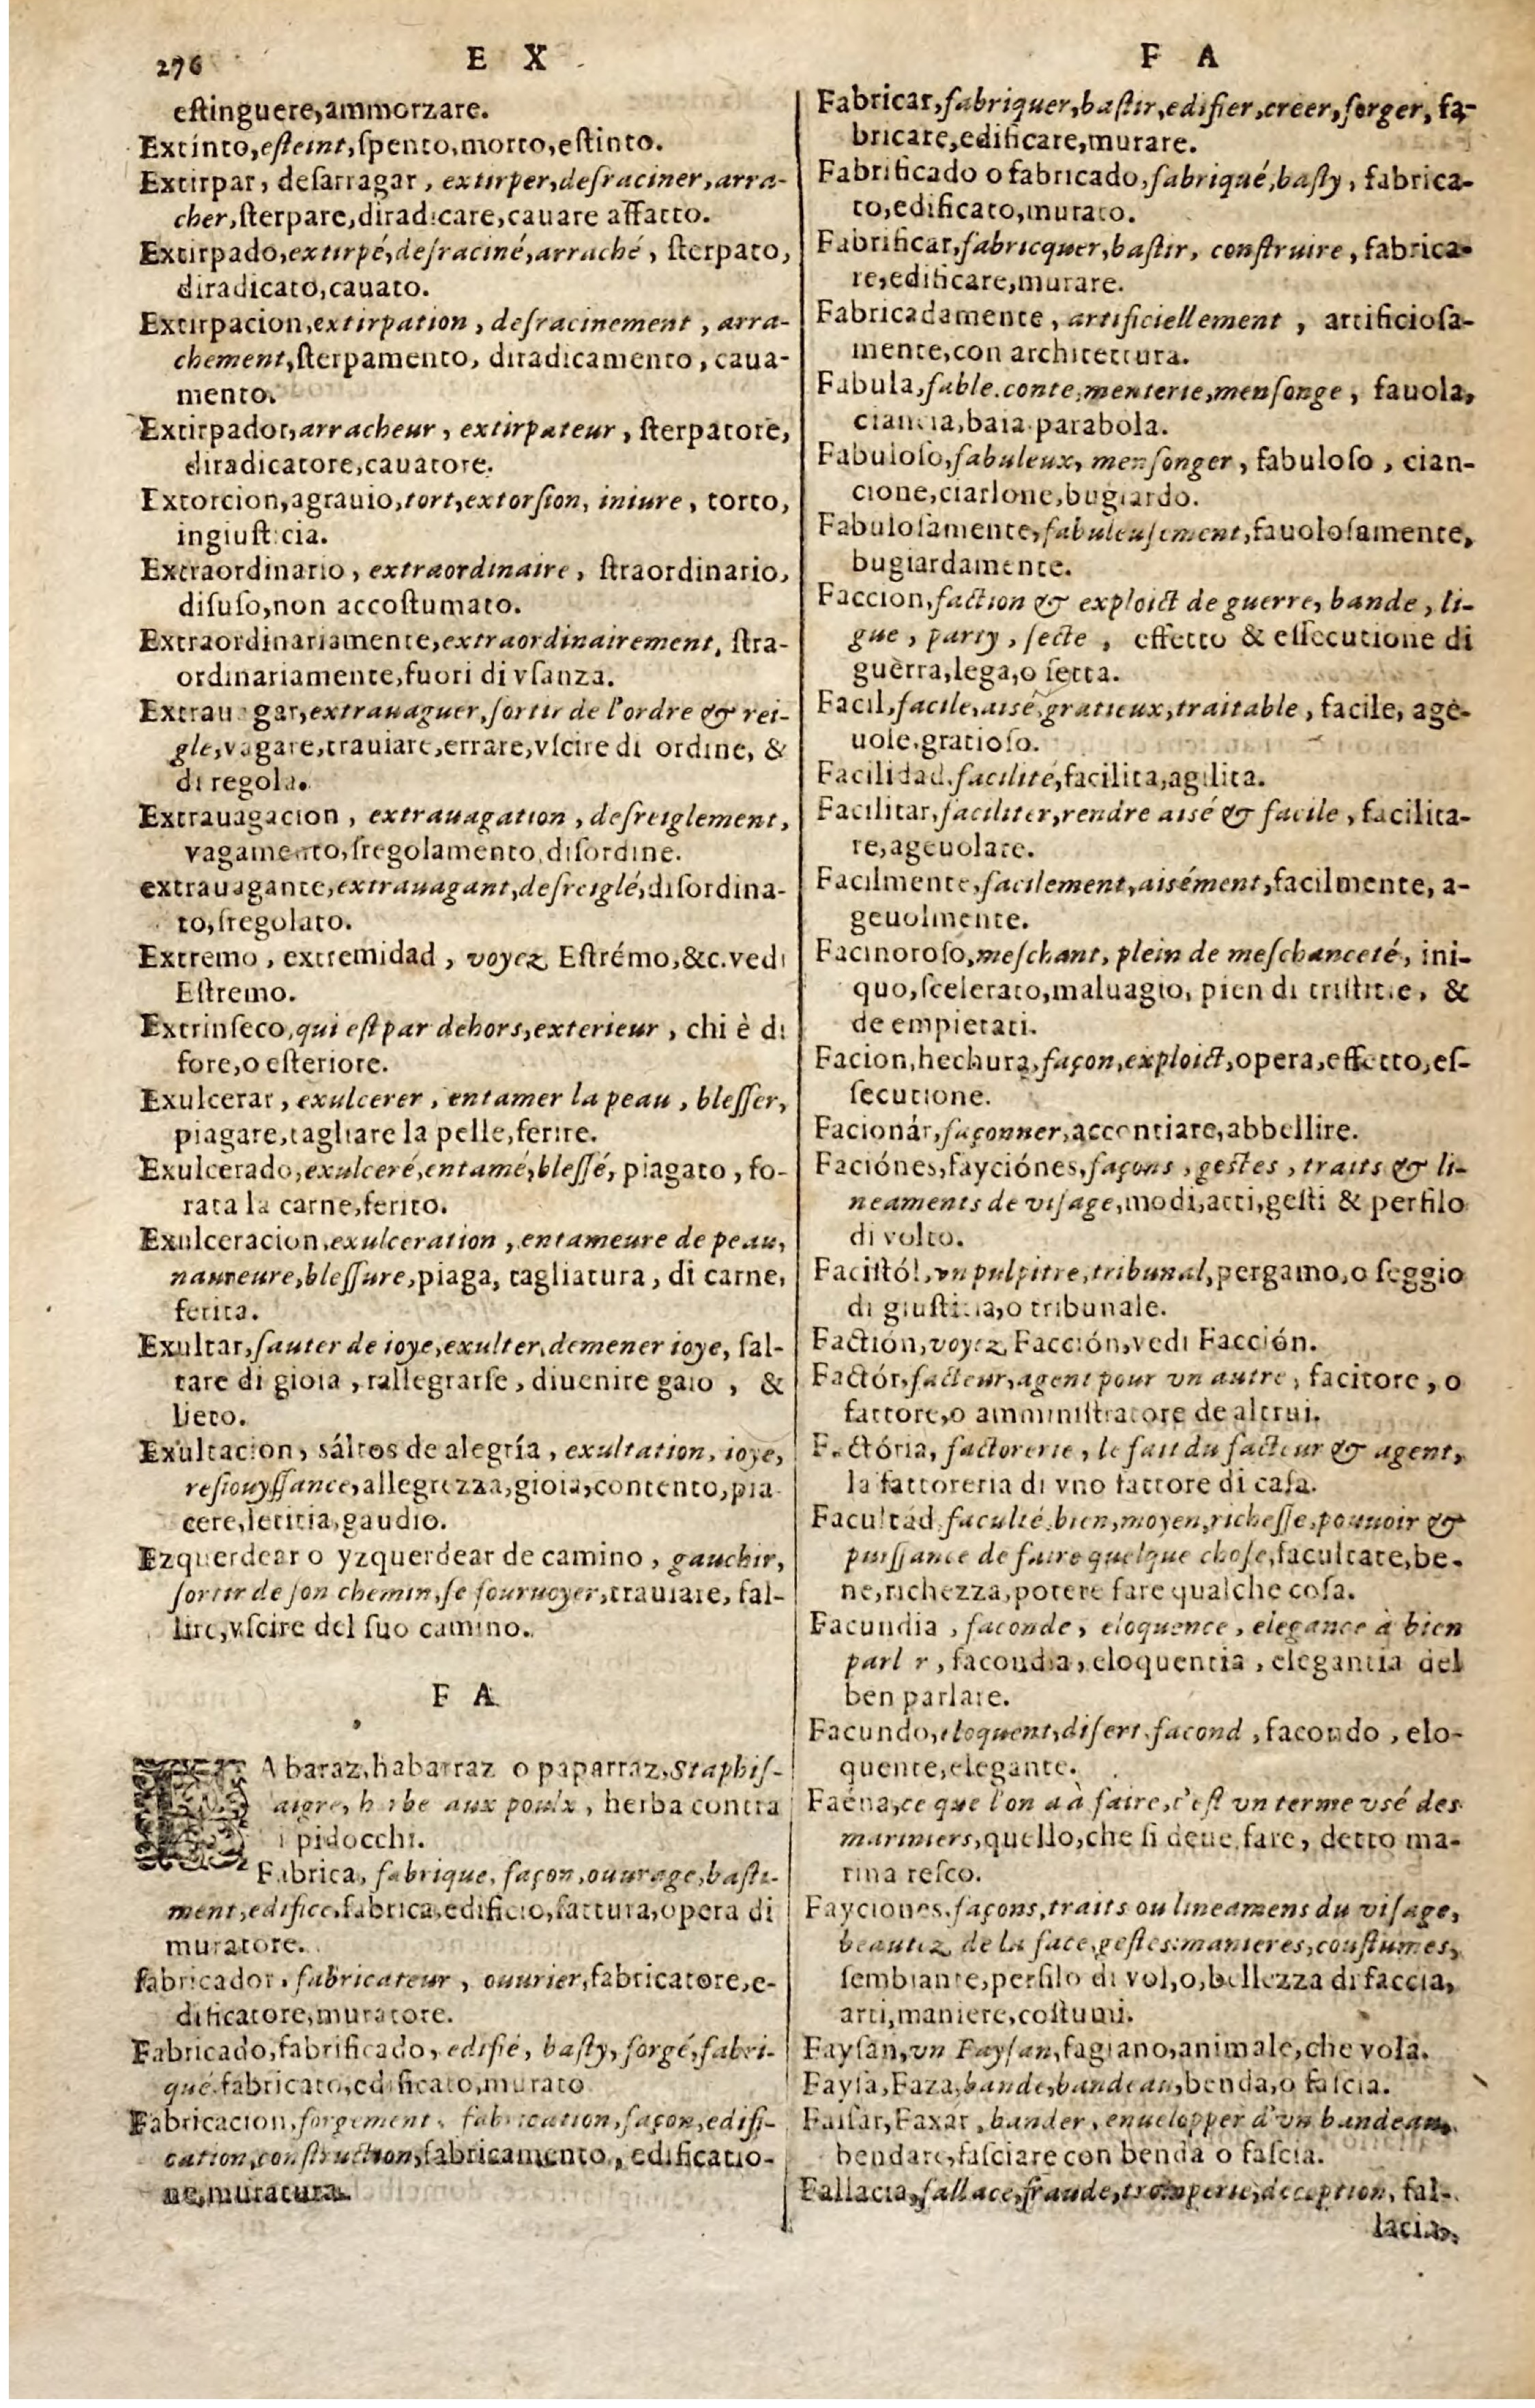 276
E X
F A
estinguere,ammorzare.
Extinto,esteint,spento,morto,estinto.
Extirpar, desarragar, extirper,desraciner,arra-
cher,sterpare,diradicare,cauare affatto.
Extirpado,extirpé,desraciné,arraché, sterpato,
diradicato,cauato.
Extirpacion,extirpation, desracinement, arra-
chement,sterpamento, diradicamento, caua-
mento.
Extirpador,arracheur, extirpateur, sterpatore,
diradicatore,cauatore.
Extorcion,agrauio,tort,extorsion, iniure, torto,
ingiusticia.
Extraordinario, extraordinaire, straordinario,
disuso,non accostumato.
Extraordinariamente,extraordinairement, stra-
ordinariamente,fuori di vsanza.
Extrauagar,extrauaguer,sortir de l'ordre & rei-
gle,vagare,trauiare,errare,vscire di ordine, &
di regola.
Extrauagacion, extrauagation, desreiglement,
vagamento,sregolamento,disordine.
extrauagante,extrauagant,desreiglé,disordina-
to,sregolato.
Extremo, extremidad, voyez Estrémo,&c.vedi
Estremo.
Extrinseco,qui est par dehors,exterieur, chi è di
fore,o esteriore.
Exulcerar, exulcerer, entamer la peau, blesser,
piagare,tagliare la pelle,ferire.
Exulcerado,exulceré,entamé,blessé, piagato, fo-
rata la carne,ferito.
Exulceracion,exulceration, entameure de peau,
naureure,blessure,piaga, tagliatura, di carne,
ferita.
Exultar,sauter de ioye,exulter,demener ioye, sal-
tare di gioia, rallegrarse, diuenire gaio, &
lieto.
Exultacion, sáltos de alegría, exultation, ioye,
resiouyssance,allegrezza,gioia,contento,pia
cere,letitia,gaudio.
Ezquerdear o yzquerdear de camino, gauchir,
sortir de son chemin,se fouruoyer,trauiare, fal-
lire,vscire del suo camino.
F A
FAbaraz,habarraz o paparraz,Staphis-
aigre, herbe aux poulx, herba contra
i pidocchi.
Fabrica, fabrique, façon,ouurage,basti-
ment,edifice,fabrica,edificio,fattura,opera di
muratore.
fabricador, fabricateur, ouurier,fabricatore,e-
dificatore,muratore.
Fabricado,fabrificado, edifié, basty,forgé,fabri-
qué.fabricato,edificato,murato
Fabricacion,forgement, fabrication,façon,edifi-
cation,construction,fabricamento, edificatio-
ne,muratura.
Fabricar,fabriquer,bastir,edifier,creer,forger, fa-
bricare,edificare,murare.
Fabrificado o fabricado,fabriqué,basty, fabrica-
to,edificato,murato.
Fabrificar,fabricquer,bastir, construire, fabrica-
re,edificare,murare.
Fabricadamente, artificiellement, artificiosa-
mente,con architettura.
Fabula,fable.conte,menterie,mensonge, fauola,
ciancia,baia.parabola.
Fabuloso,fabuleux, mensonger, fabuloso, cian-
cione,ciarlone,bugiardo.
Fabulosamente,fabuleusement,fauolosamente,
bugiardamente.
Faccion,faction & exploict de guerre, bande, li-
gue, party, secte, effetto & essecutione di
guerra,lega,o setta.
Facil,facile,aisé,gratieux,traitable, facile, age-
uole.gratioso.
Facilidad.facilité,facilita,agilita.
Facilitar,faciliter,rendre aisé & facile, facilita-
re,ageuolare.
Facilmente,facilement,aisément,facilmente, a-
geuolmente.
Facinoroso,meschant, plein de meschanceté, ini-
quo,scelerato,maluagio, pien di tristitie, &
de empietati.
Facion,hechura,façon,exploict,opera,effetto,es-
secutione.
Facionár,façonner,accontiare,abbellire.
Faciónes,fayciónes,façons, gestes, traits & li-
neaments de visage,modi,atti,gesti & perfilo
di volto.
Facistól,vn pulpitre,tribunal,pergamo,o seggio
di giustitia,o tribunale.
Factión,voyez Facción,vedi Facción.
Factór,facteur,agent pour vn autre, facitore, o
fattore,o amministratore de altrui.
Factória, factorerie, le fait du facteur & agent,
la fattoreria di vno fattore di casa.
Facultád.faculté,bien,moyen,richesse,pouuoir &
puissance de faire quelque chose,facultate,be-
ne,richezza,potere fare qualche cosa.
Facundia, faconde, eloquence, elegance à bien
parl r, facondia, eloquentia, elegantia del
ben parlare.
Facundo,eloquent,disert.facond, facondo, elo-
quente,elegante.
Faéna,ce que l'on a à faire,c'est vn terme vsé des
mariniers,quello,che si deue fare, detto ma-
rina resco.
Fayciones.façons,traits ou lineamens du visage,
beautez de la face,gestes:manieres,coustumes,
sembiante,perfilo di vol,o,bellezza di faccia,
atti,maniere,costumi.
Faysan,vn Faysan,fagiano,animale,che vola.
Faysa,Faza,bande,bandeau,benda,o fascia.
Faisar,Faxár, bander, enuelopper d'vn bandeau,
bendare,fasciare con benda o fascia.
Fallacia,fallace,fraude,tromperie,deception, fal-
lacia,